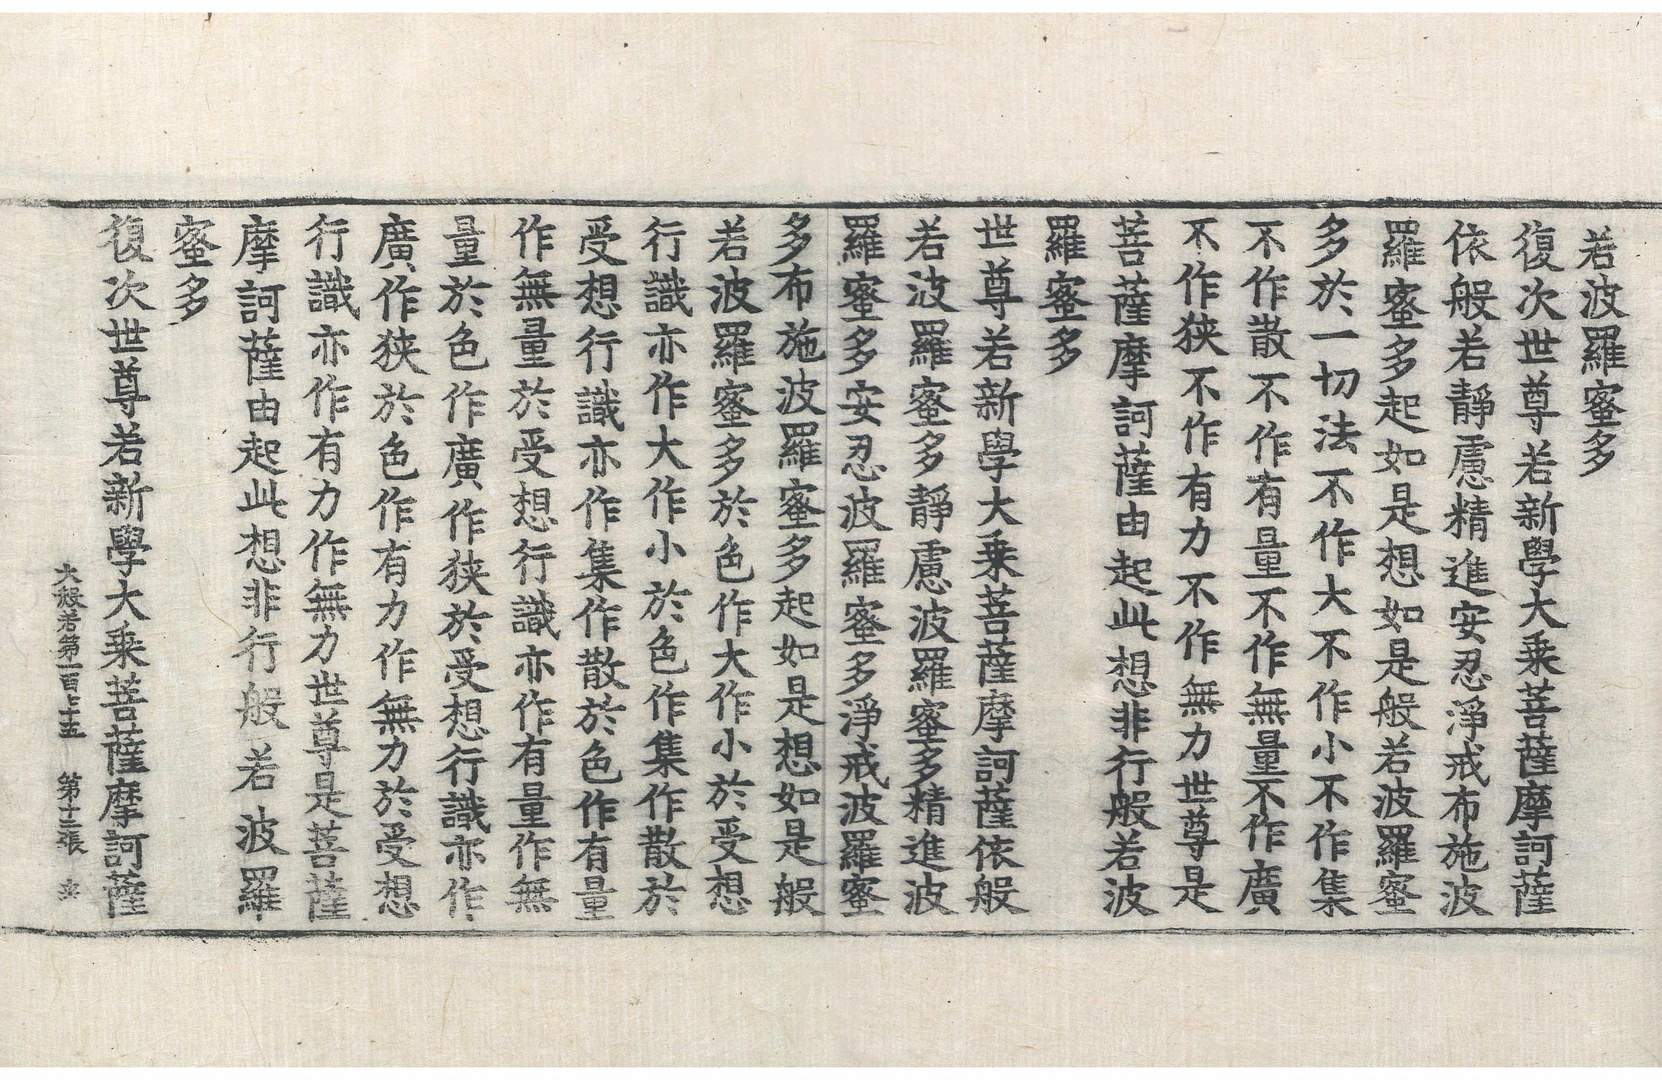 若波羅蜜多
復次世尊若新學大乗菩薩摩訶薩
依般若靜慮精進安忍淨戒布施波
羅蜜多起如是想如是般若波羅蜜
多於一切法不作大不作小不作集
不作散不作有量不作無量不作廣
不作狹不作有力不作無力世尊是
菩薩摩訶薩由起此想非行般若波
羅蜜多
世尊若新學大乗菩薩摩訶薩依般
若波羅蜜多靜慮波羅蜜多精進波
羅蜜多安忍波羅蜜多淨戒波羅蜜
多布施波羅蜜多起如是想如是般
若波羅蜜多於色作大作小於受想
行識亦作大作小於色作集作散於
受想行識亦作集作散於色作有量
作無量於受想行識亦作有量作無
量於色作廣作狹於受想行識亦作
廣作狹於色作有力作無力於受想
行識亦作有力作無力世尊是菩薩
摩訶薩由起此想非行般若波羅
蜜多
復次世尊若新學大乗菩薩摩訶薩
大般若第一百七十五 第十二張